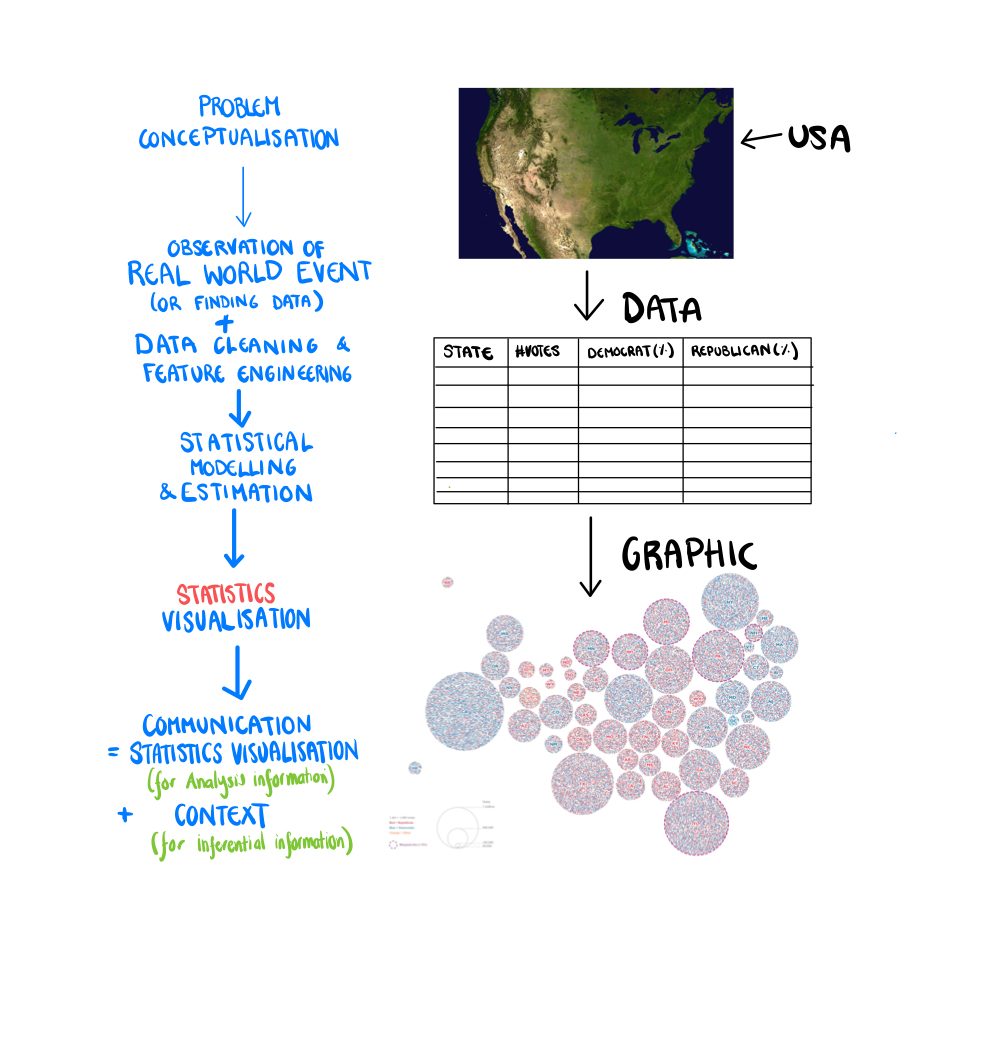 PROBLEM
CONCEPTUALISATION
OBSERVATION OF
REAL WORLD EVENT
(OR FINDING DATA)
+
DATA CLEANING &
FEATURE ENGINEERING
STATISTICAL
MODELLING
& ESTIMATION
STATISTICS
VISUALISATION
COMMUNICATION
= STATISTICS VISUALISATION
(for Analysis information)
+ CONTEXT
(for inferential information)
USA
DATA
STATE #VOTES DEMOCRAT(%) REPUBLICAN(%)
GRAPHIC